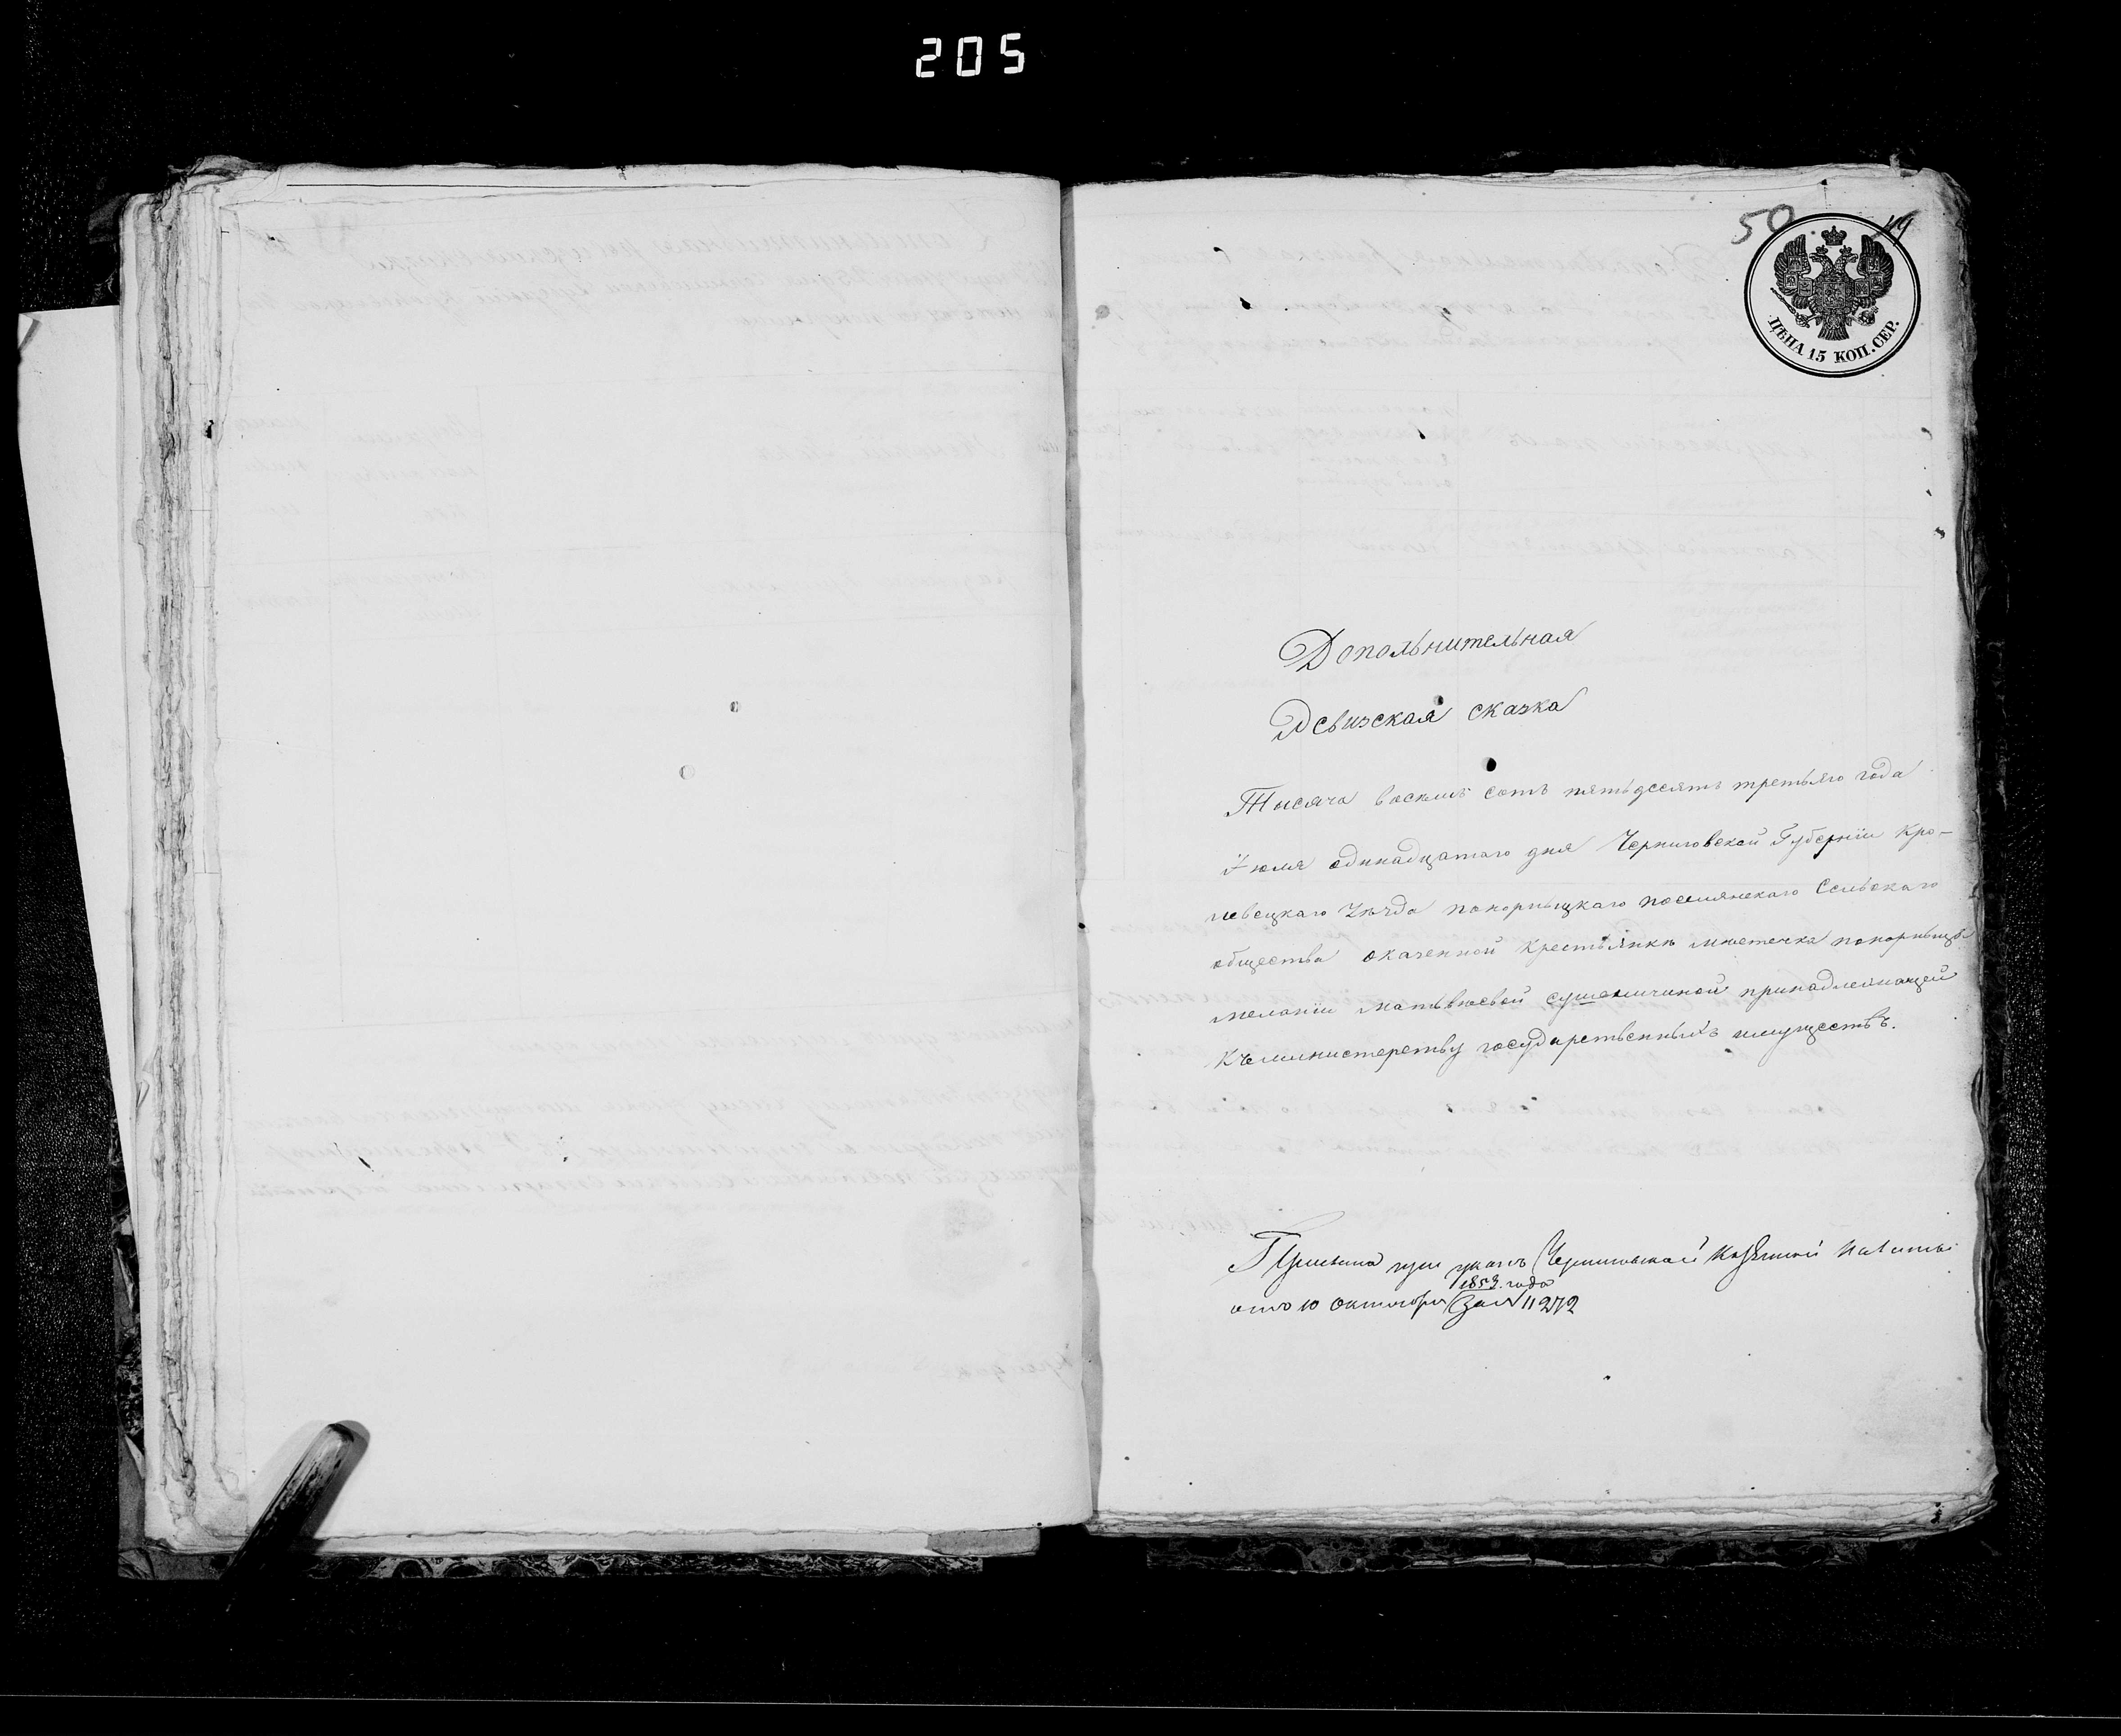 205
50
49
ЦѢНА 15 КОП. СЕР.
Допольнительная
Ревизская сказка
Тысяча восемь сотъ пятьдесятъ третьяго года
Іюля одинадцатаго дня Черниговской Губерніи Кро-
левецкаго Уѣзда понорницкаго поселянскаго Сельскаго
общества оказенной крестьянкѣ мѣстечка понорницы
меланіи матьвѣевой сушомчиной принадлежащей
Къ министерству государственныхъ имуществъ.
Прислана при указѣ Черниговской Казенной Палаты
1853. года
отъ 10 Октября За № 11272